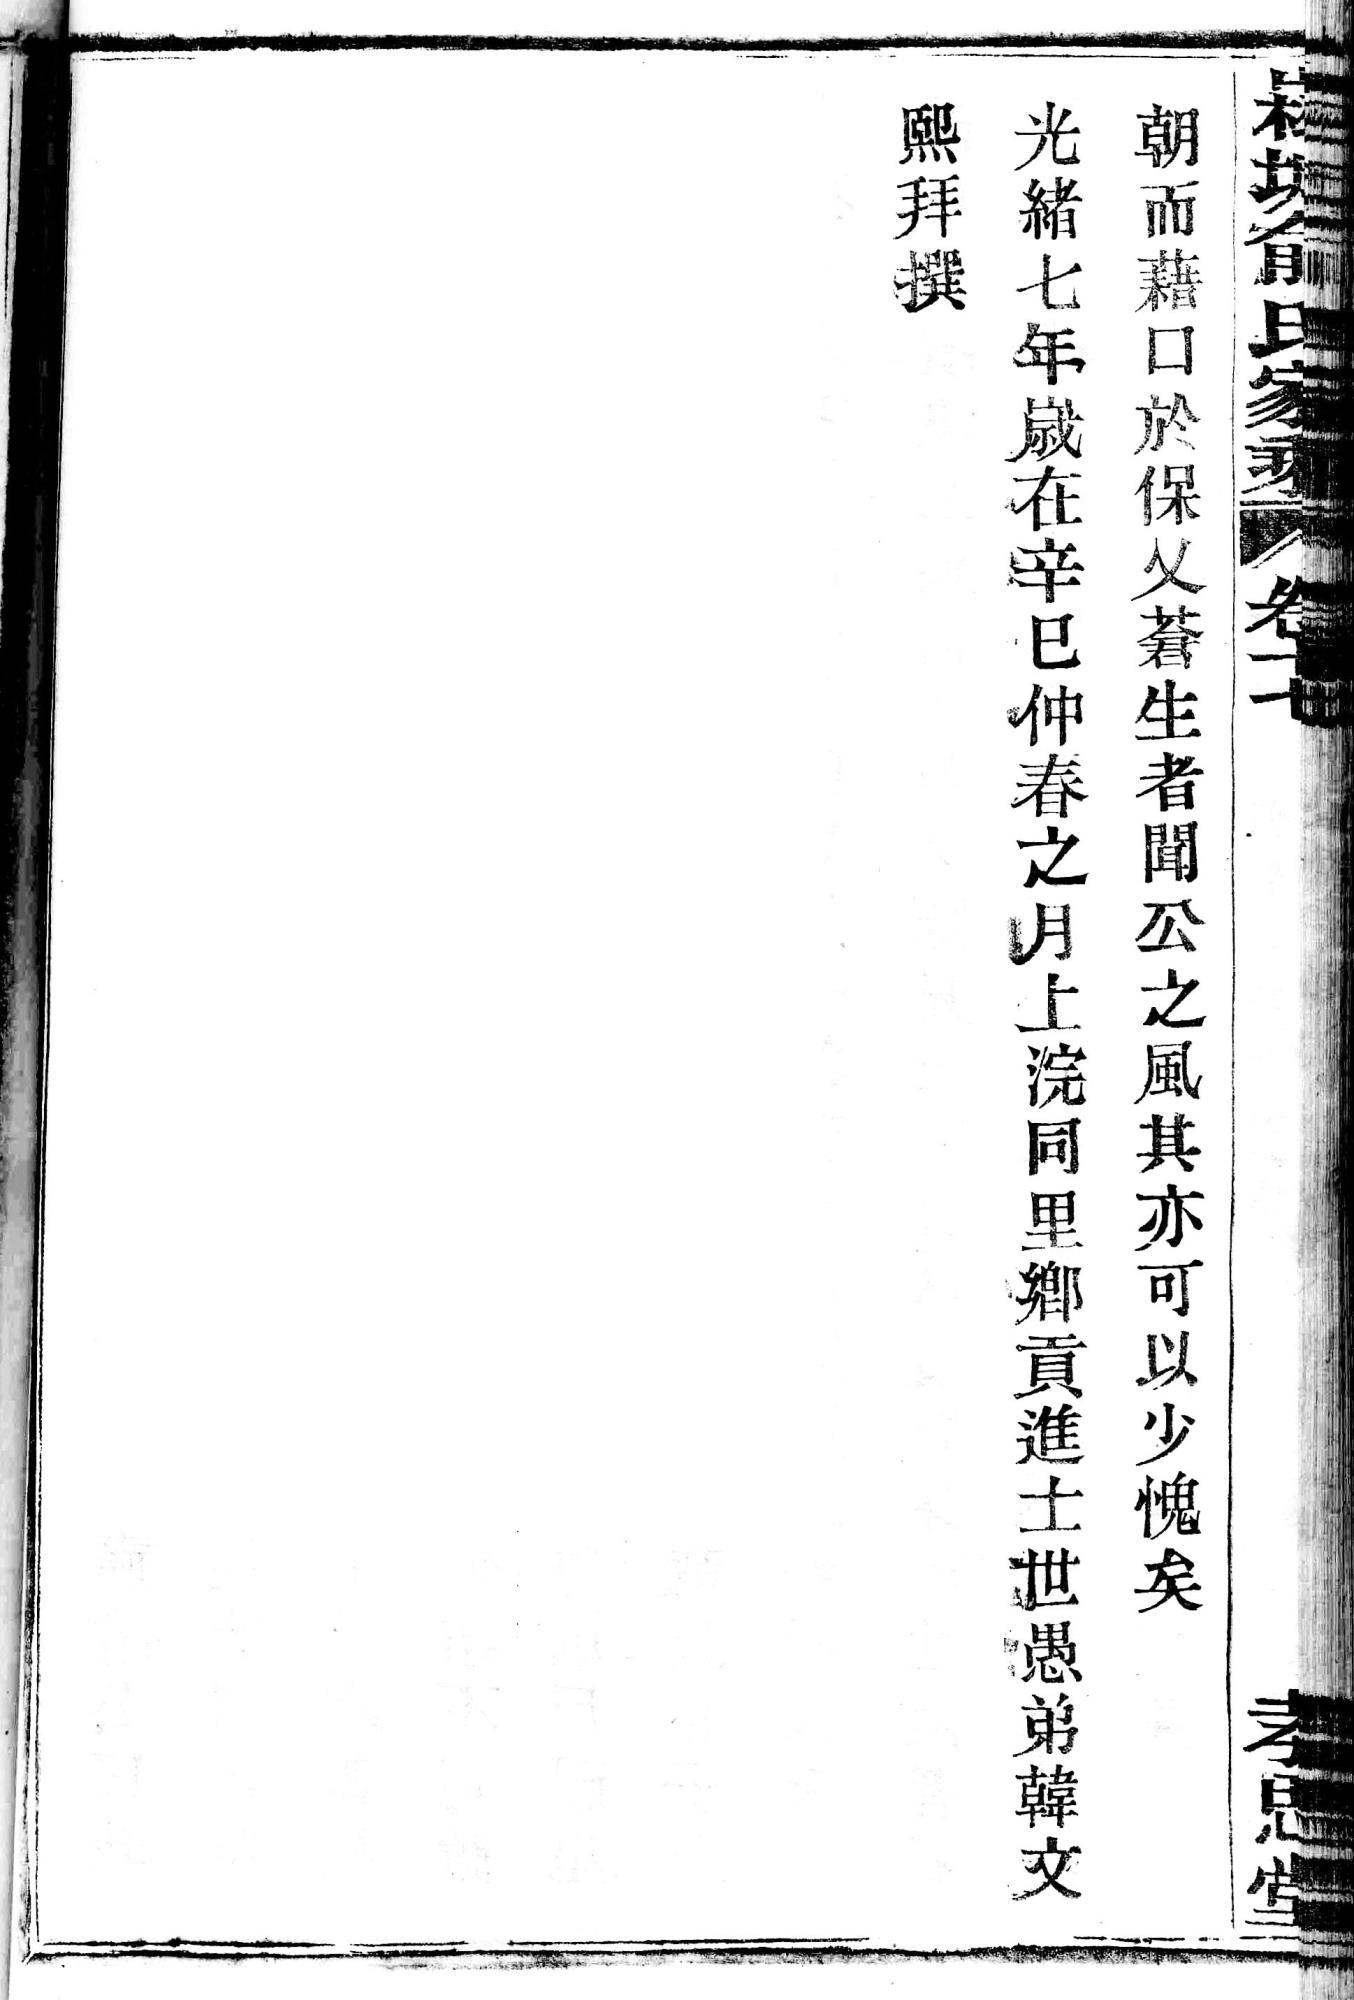 氏家乘
卷十七
孝思堂
朝而藉口於保乂蒼生者聞公之風其亦可以少愧矣
光緒七年歲在辛巳仲春之月上浣同里鄉貢進士世愚弟韓文
熙拜撰